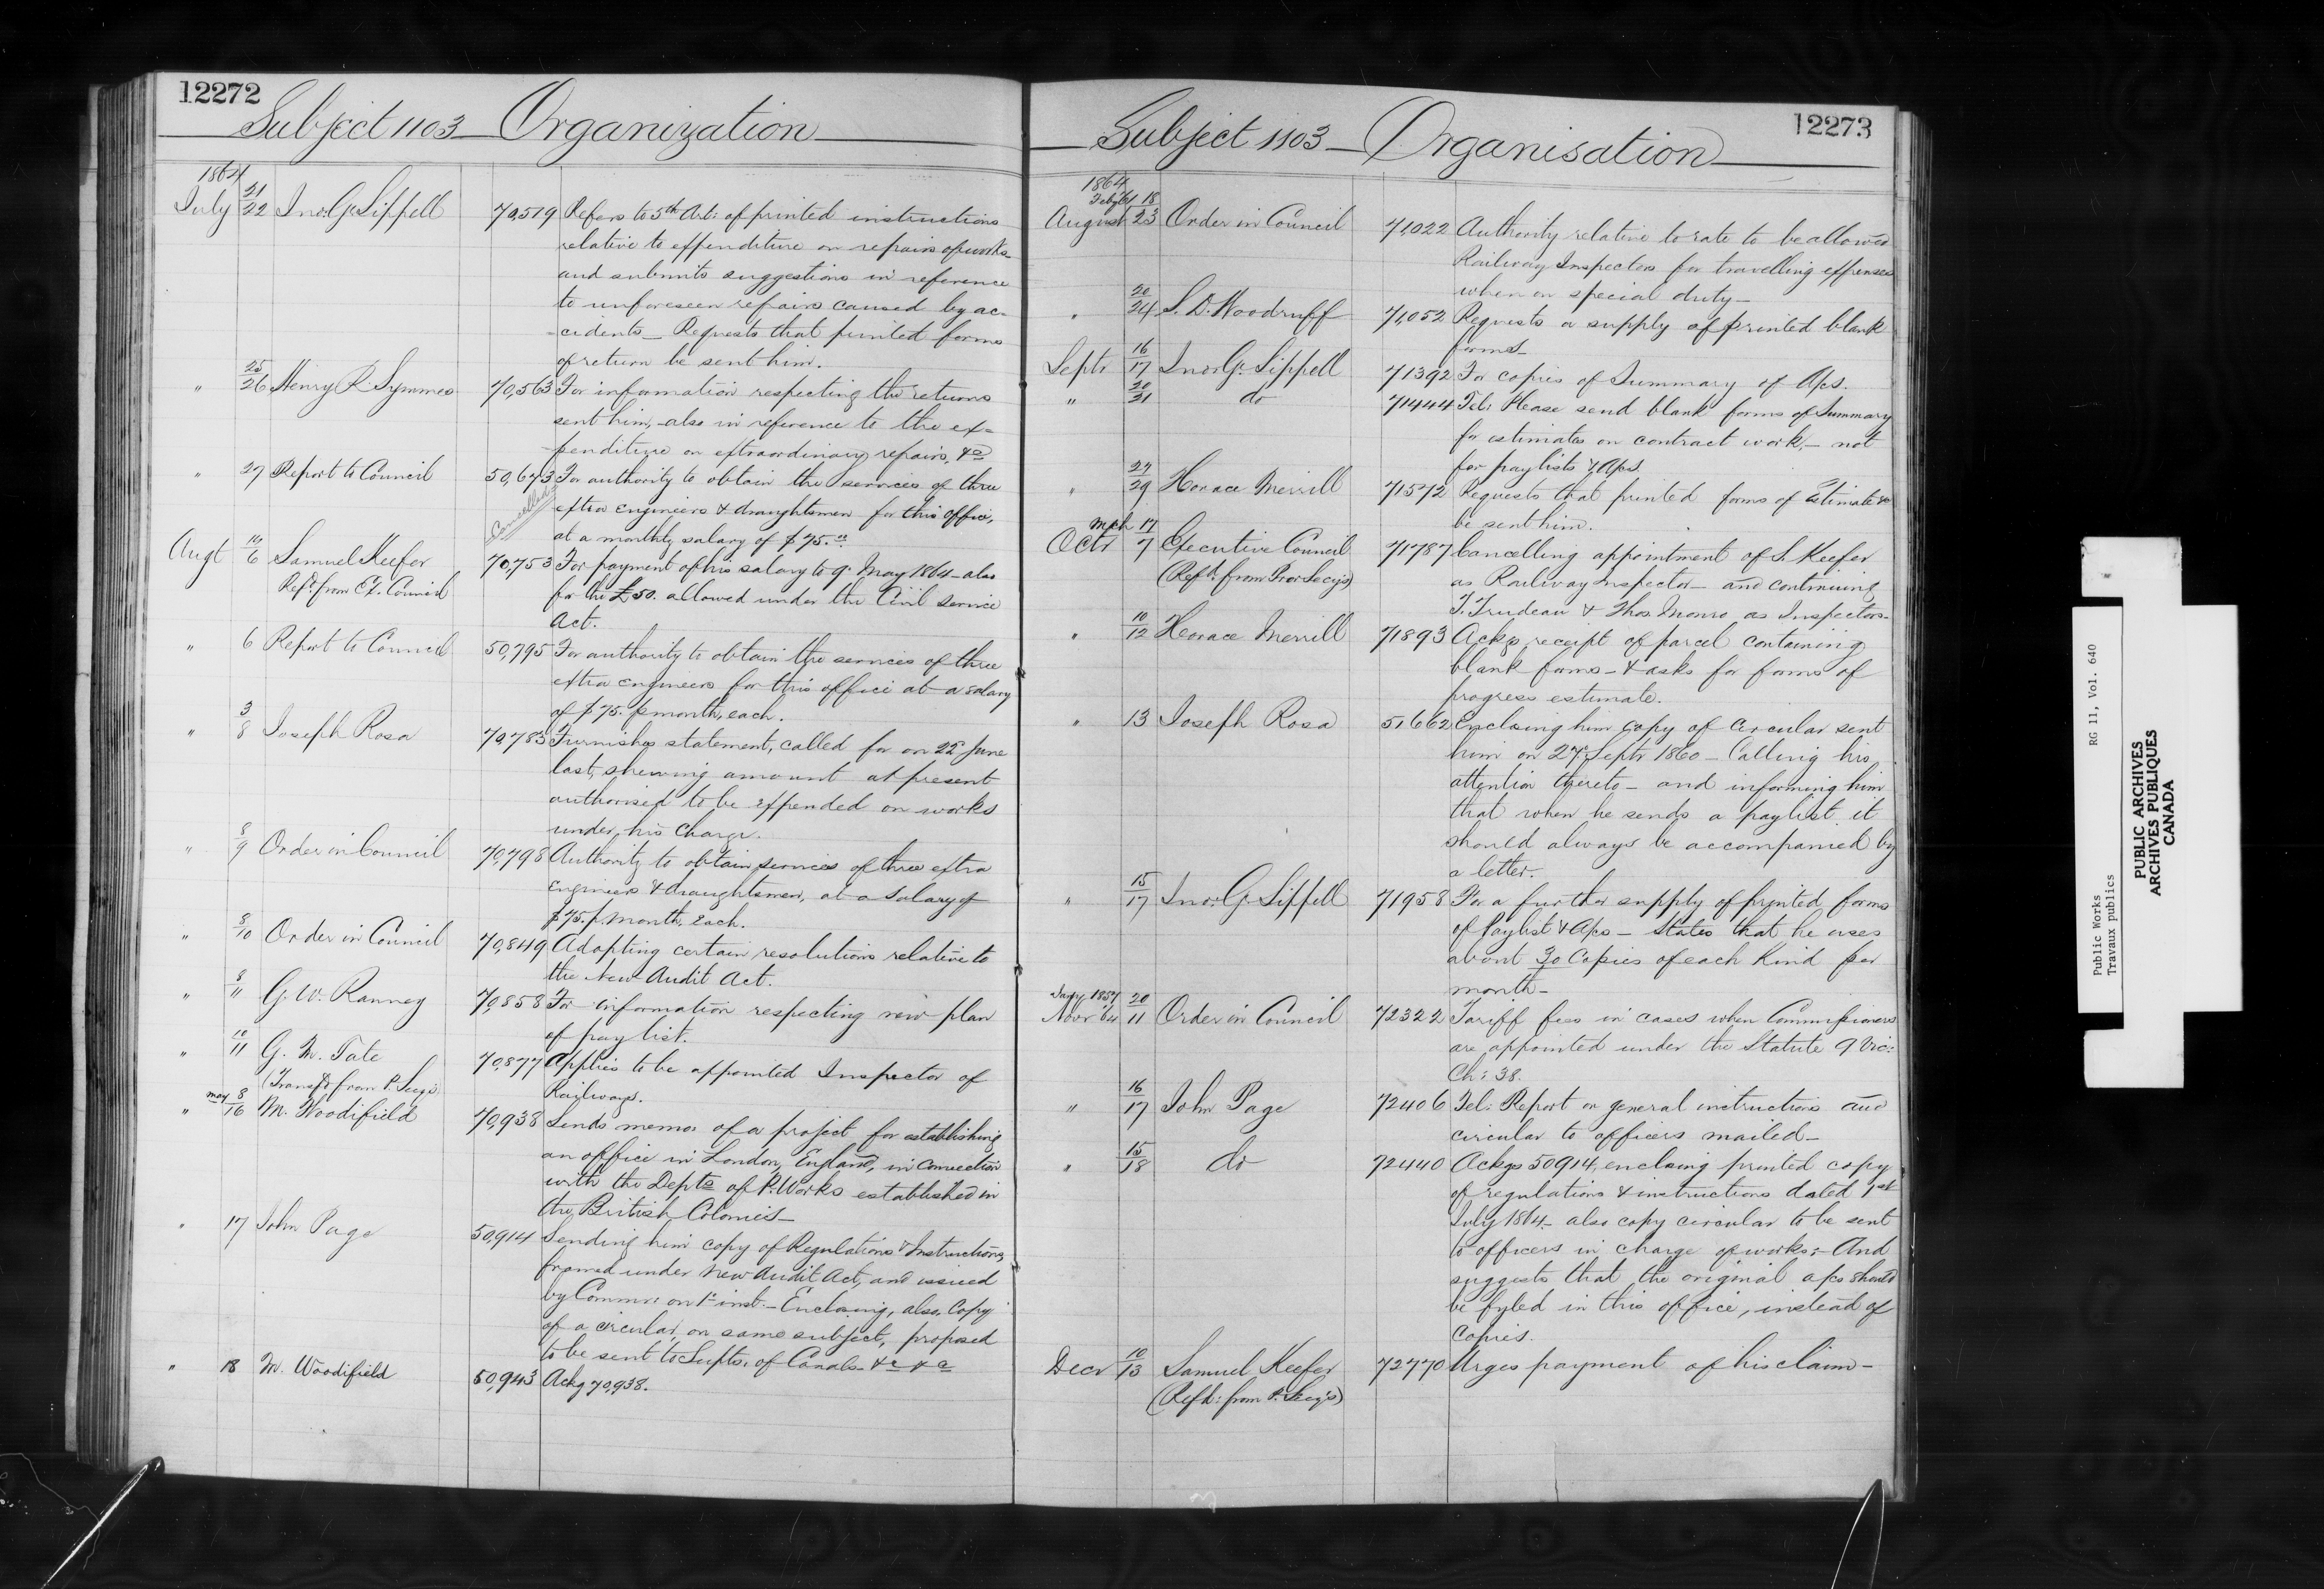 12272
Subject 1103 — Organization
1864
July 21/22 Jno. G. Sippell 70,519 Refers to 5th Art: of printed instructions
relative to expenditure on repairs of works
and submits suggestions in reference
to unforeseen repairs caused by ac-
-cidents — Requests that printed forms
of return be sent him.
" 25/26 Henry R. Symmes 70,563 For information respecting the returns
sent him, also in reference to the ex-
-penditure on extraordinary repairs, &c
" 27 Report to Council 50,673 For authority to obtain the services of three
Cancelled
extra engineers & draughtsmen for this office,
at a monthly salary of $75.
Augt 6 Samuel Keefer 70,753 For payment of his salary to 9. May 1864 – also
Refd. from Ex. Council for the £50. allowed under the Civil Service
Act.
" 6 Report to Council 50,795 For authority to obtain the services of three
extra engineers for this office at a salary
of $75. p month, each.
" 3/8 Joseph Rosa 70,783 Furnishes statement, called for on 22d June
last, shewing amount at present
authorised to be expended on works
under his charge.
" 8/9 Order in Council 70,798 Authority to obtain services of three extra
Engineers & draughtsmen, at a salary of
$75. p. month, each.
" 8/10 Order in Council 70,849 Adopting certain resolutions relative to
the New Audit Act.
" 8/11 G. W. Ranney 70,858 For information respecting new plan
of pay list.
" 10/11 G. M. Tate 70,877 Applies to be appointed Inspector of
(Transfd from P. Secy's) Railways.
" may 8/16 M. Woodifield 70,938 Sends memo. of a project for establishing
an office in London, England, in connection
with the Depts of P. Works established in
the British Colonies —
" 17 John Page 50,914 Sending him copy of Regulations & Instructions,
framed under new Audit Act, and issued
by Commr: on 1st inst. — Enclosing, also, copy
of a circular, on same subject, proposed
to be sent to Supts. of Canals &c &c
" 18 M. Woodifield 50,943 Ackg 70,938.
12273
Subject 1103 — Organisation
1864
August 18/23 Order in Council 71,022 Authority relative to rate to be allowed
Railway Inspectors for travelling expenses
when on special duty —
" 20/24 S. D. Woodruff 71,052 Requests a supply of printed blank
forms —
Septr 16/17 Jno. G. Sippell 71392 For copies of Summary of A/cs.
" 20/21 do 71444 Tel: Please send blank forms of Summary
for estimates on contract work, — not
for paylists & A/cs.
" 27/29 Horace Merrill 71572 Requests that printed forms of Estimate &c
be sent him.
Octr mch 17/7 Executive Council 71787 Cancelling appointment of S. Keefer
(Refd. from Prov Secy's) as Railway Inspector — and continuing
T. Trudeau & Thos. Monro as Inspectors —
" 10/12 Horace Merrill 71893 Ackgs receipt of parcel containing
blank forms — & asks for forms of
progress estimate.
" 13 Joseph Rosa 51,662 Enclosing him copy of circular sent
him on 27th Septr 1860 — Calling his
attention thereto — and informing him
that when he sends a paylist it
should always be accompanied by
a letter.
" 15/17 Jno. G. Sippell 71958 For a further supply of printed forms
of Paylist & A/cs — States that he uses
about 30 Copies of each kind per
month —
Jany 1857 20
Novr 64 11 Order in Council 72322 Tariff fees in cases when Commissioners
are appointed under the Statute 9 Vic:
Ch: 38.
" 16/17 John Page 72406 Tel: Report on general instructions and
circular to officers mailed —
" 15/18 do 72440 Ackgs 50914, enclosing printed copy
of regulations & instructions dated 1st
July 1864 — also copy circular to be sent
to officers in charge of works; — And
suggests that the original a/cs should
be fyled in this office, instead of
copies.
Decr 10/13 Samuel Keefer 72770 Urges payment of his claim —
(Refd: from P. Secy's)
Public Works RG 11, Vol. 640
Travaux publics
PUBLIC ARCHIVES
ARCHIVES PUBLIQUES
CANADA